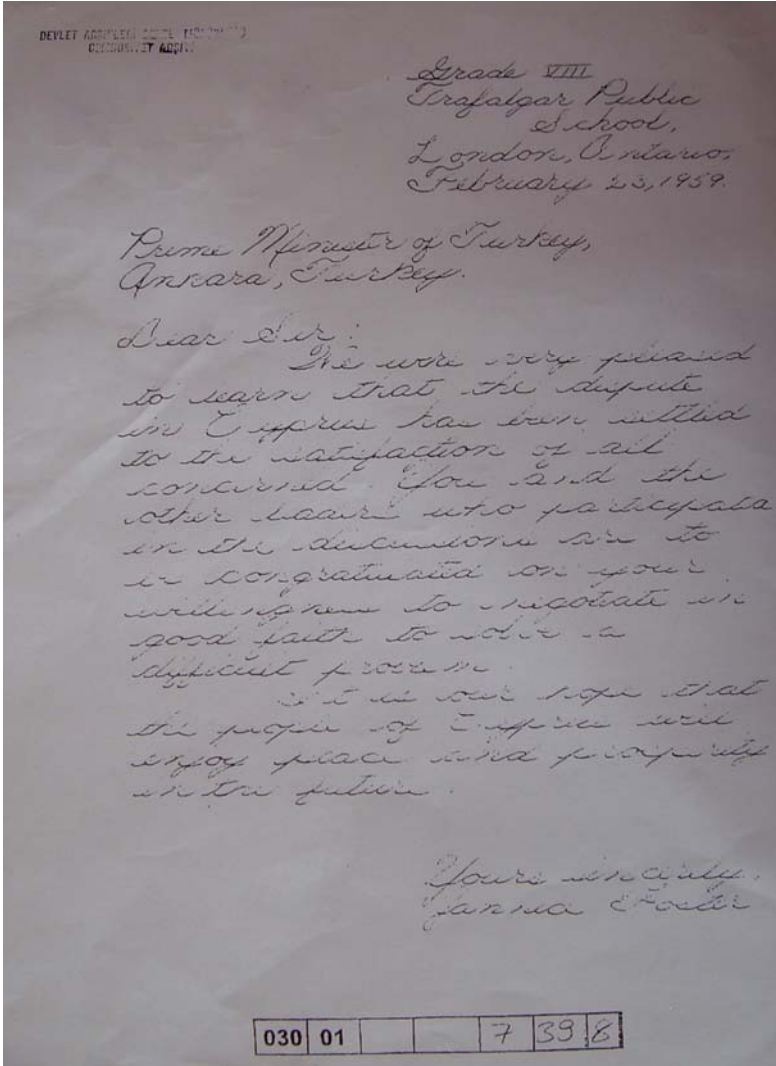 DEVLET
Grade VIII
Trafalgar Public
School,
London, Ontario,
February 23, 1959.
Prime Minister of Turkey,
Ankara, Turkey.
Dear Sir:
We were very pleased
to learn that the dispute
in Cyprus has been settled
to the satisfaction of all
concerned. You and the
other leaders who participated
in the discussions are to
be congratulated on your
willingness to negotiate in
good faith to solve a
difficult problem.
It is our hope that
the people of Cyprus will
enjoy peace and prosperity
in the future.
Yours sincerely,
030 01 7 39 8